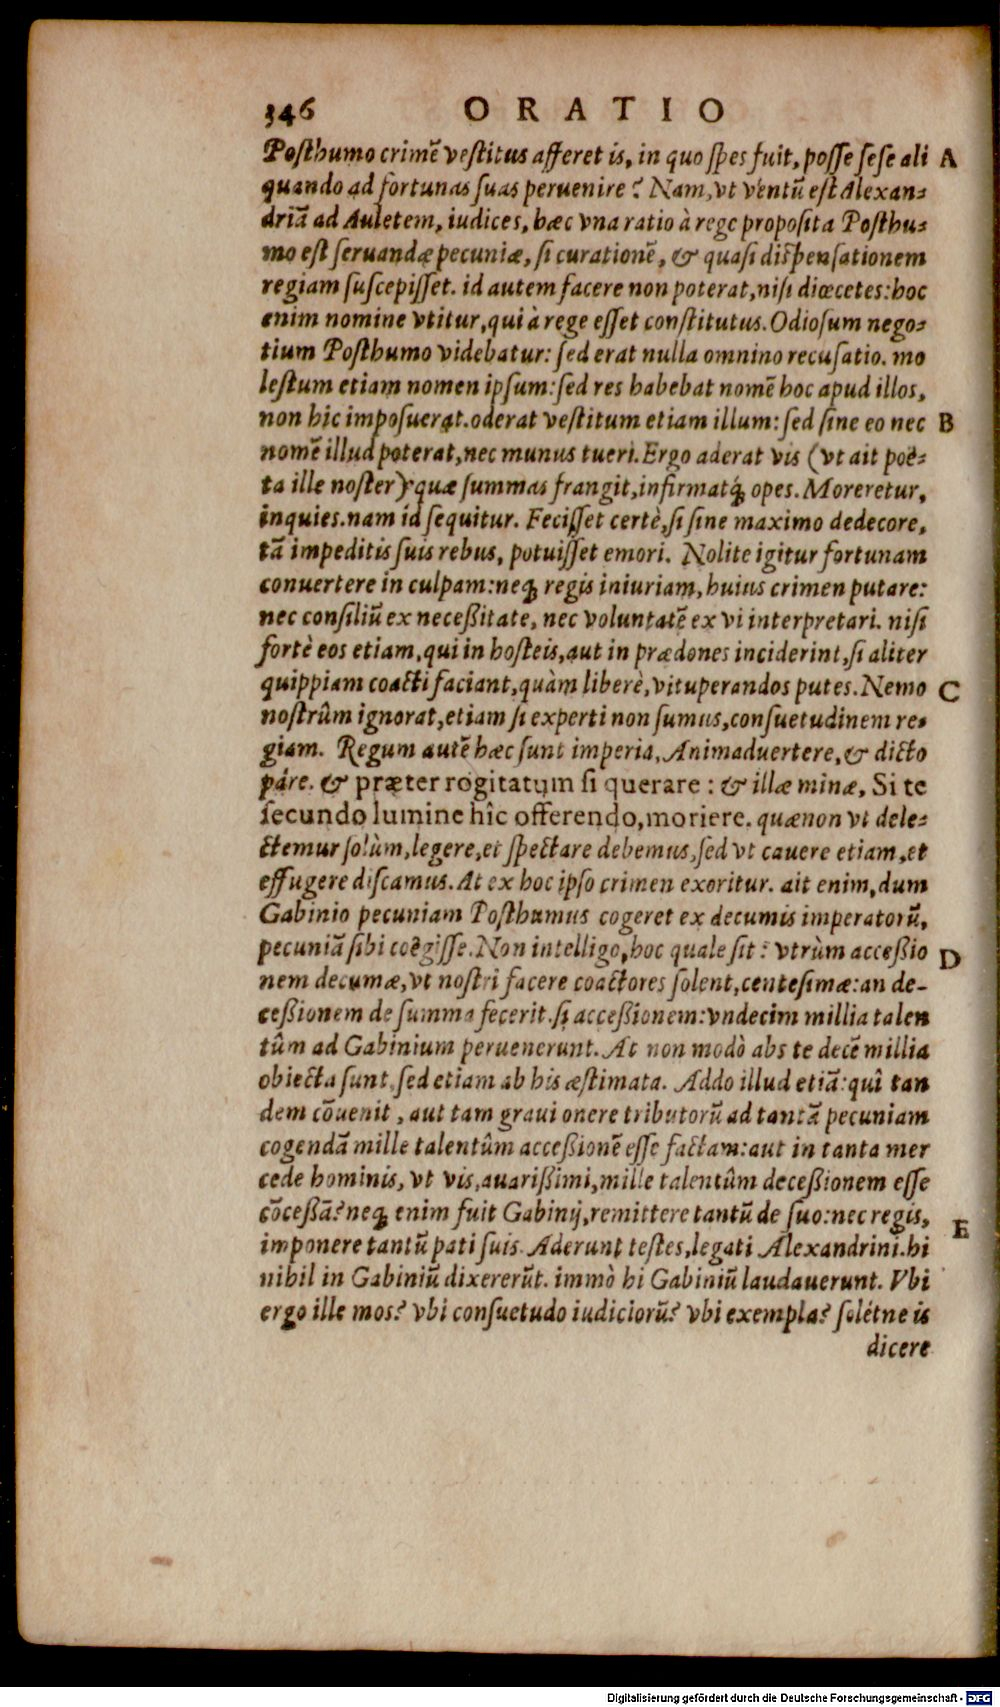 346 ORATIO
Posthumo crimẽ vestitus afferet is, in quo spes fuit, posse sese ali A
quando ad fortunas suas peruenire? Nam, vt ventũ est Alexan-
driã ad Auletem, iudices, hæc vna ratio à rege proposita Posthu-
mo est seruandæ pecuniæ, si curationẽ, & quasi dispensationem
regiam suscepisset. id autem facere non poterat, nisi diœcetes: hoc
enim nomine vtitur, qui à rege esset constitutus. Odiosum nego-
tium Posthumo videbatur: sed erat nulla omnino recusatio. mo
lestum etiam nomen ipsum: sed res habebat nomẽ hoc apud illos,
non hic imposuerat. oderat vestitum etiam illum: sed sine eo nec B
nomẽ illud poterat, nec munus tueri. Ergo aderat vis (vt ait poë-
ta ille noster) quæ summas frangit, infirmatq́; opes. Moreretur,
inquies. nam id sequitur. Fecisset certè, si sine maximo dedecore,
tã impeditis suis rebus, potuisset emori. Nolite igitur fortunam
conuertere in culpam: neq; regis iniuriam, huius crimen putare:
nec consiliũ ex neceßitate, nec voluntatẽ ex vi interpretari. nisi
fortè eos etiam, qui in hosteis, aut in prædones inciderint, si aliter
quippiam coacti faciant, quàm liberè, vituperandos putes. Nemo C
nostrûm ignorat, etiam si experti non sumus, consuetudinem re-
giam. Regum autẽ hæc sunt imperia, Animaduertere, & dicto
páre. & præter rogitatum si querare: & illæ minæ, Si te
secundo lumine hîc offerendo, moriere. quæ non vt dele-
ctemur solùm, legere, et spectare debemus, sed vt cauere etiam, et
effugere discamus. At ex hoc ipso crimen exoritur. ait enim, dum
Gabinio pecuniam Posthumus cogeret ex decumis imperatorũ,
pecuniã sibi coëgisse. Non intelligo, hoc quale sit: vtrùm acceßio D
nem decumæ, vt nostri facere coactores solent, centesimæ: an de-
ceßionem de summa fecerit. si acceßionem: vndecim millia talen
tûm ad Gabinium peruenerunt. At non modò abs te decẽ millia
obiecta sunt, sed etiam ab his æstimata. Addo illud etiã: quî tan
dem cõuenit, aut tam graui onere tributorũ ad tantã pecuniam
cogendã mille talentûm acceßionẽ esse factam: aut in tanta mer
cede hominis, vt vis, auarißimi, mille talentûm deceßionem esse
cõceßã? neq; enim fuit Gabinij, remittere tantũ de suo: nec regis,
imponere tantũ pati suis. Aderunt testes, legati Alexandrini. hi E
nihil in Gabiniũ dixererũt. immò hi Gabiniũ laudauerunt. Vbi
ergo ille mos? vbi consuetudo iudiciorũ? vbi exempla? solétne is
dicere
Digitalisierung gefördert durch die Deutsche Forschungsgemeinschaft - DFG